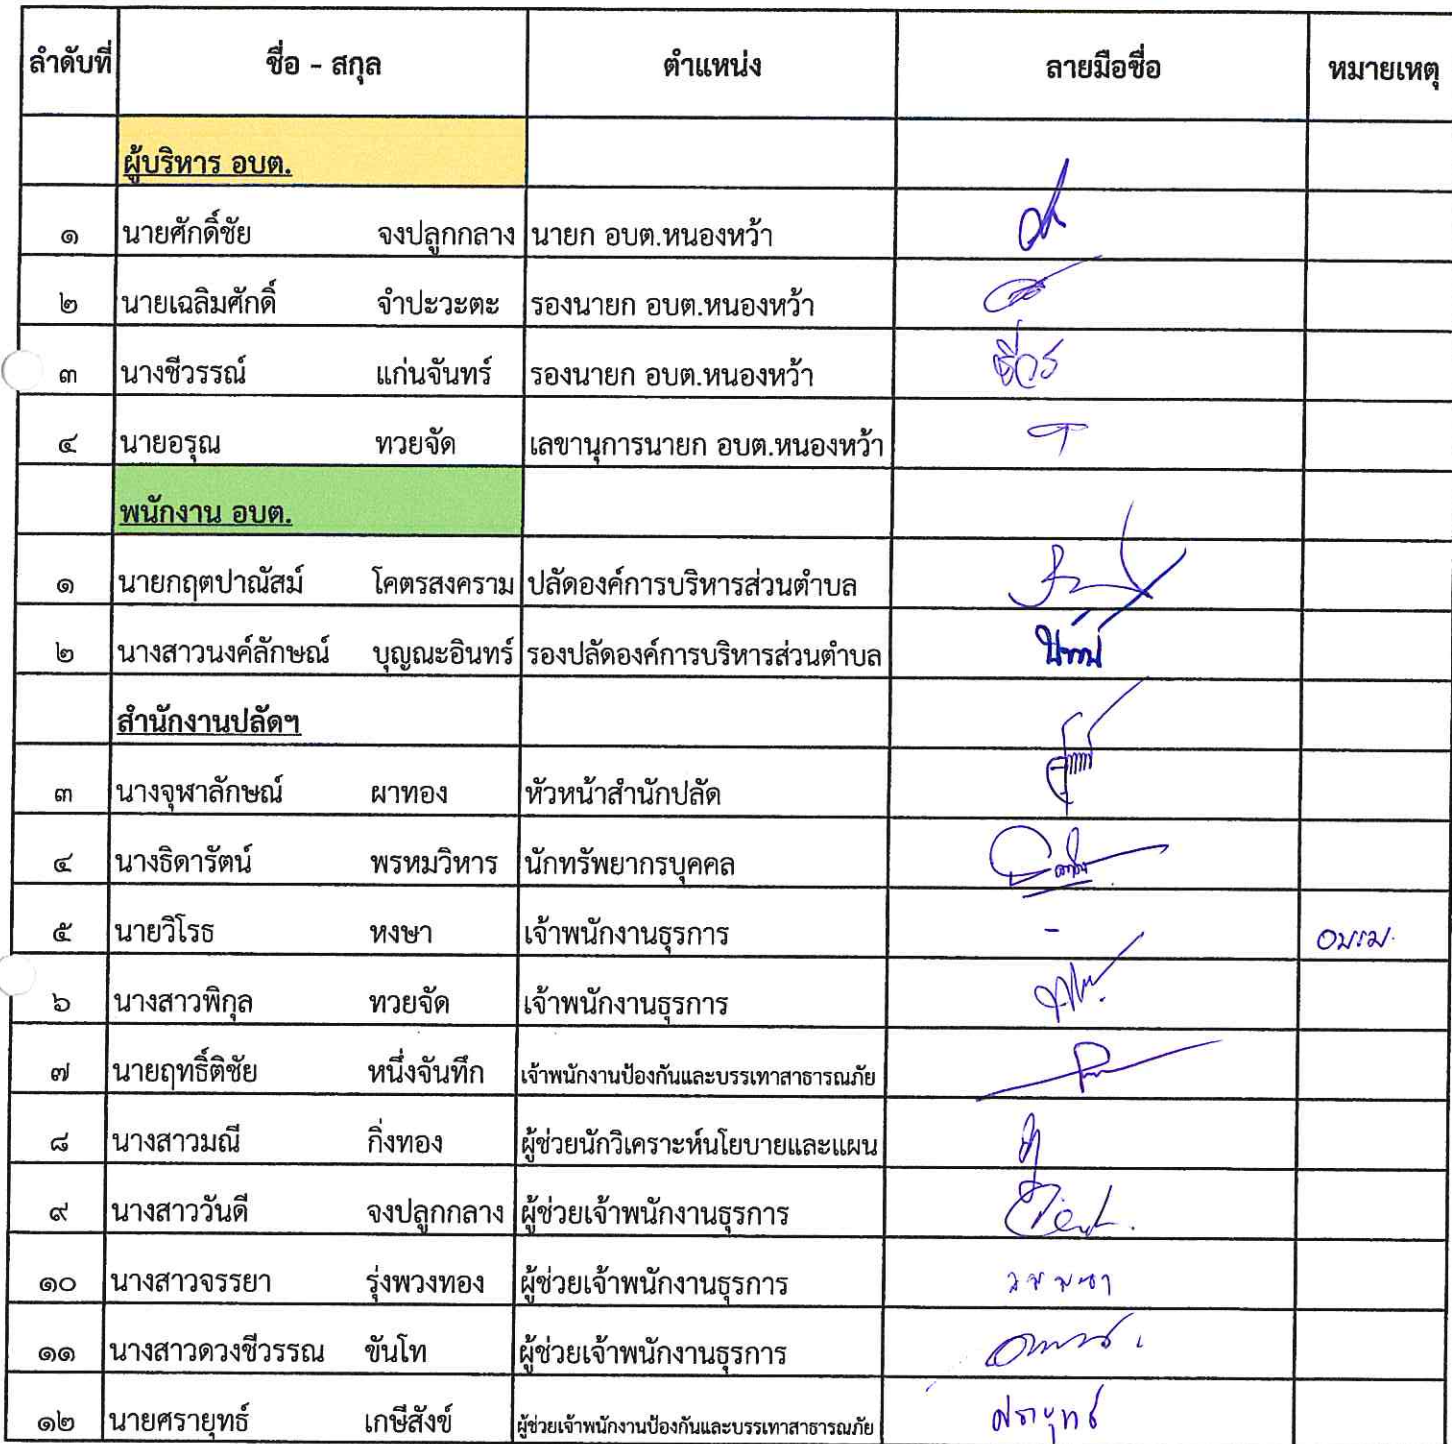 ลำดับที่ ชื่อ - สกุล ตำแหน่ง ลายมือชื่อ หมายเหตุ
ผู้บริหาร อบต.
๑ นายศักดิ์ชัย จงปลูกกลาง นายก อบต.หนองหว้า
๒ นายเฉลิมศักดิ์ จำปะวะตะ รองนายก อบต.หนองหว้า
๓ นางชีวรรณ์ แก่นจันทร์ รองนายก อบต.หนองหว้า
๔ นายอรุณ ทวยจัด เลขานุการนายก อบต.หนองหว้า
พนักงาน อบต.
๑ นายกฤตปาณัสม์ โคตรสงคราม ปลัดองค์การบริหารส่วนตำบล
๒ นางสาวนงค์ลักษณ์ บุญณะอินทร์ รองปลัดองค์การบริหารส่วนตำบล
สำนักงานปลัดฯ
๓ นางจุฬาลักษณ์ ผาทอง หัวหน้าสำนักปลัด
๔ นางธิดารัตน์ พรหมวิหาร นักทรัพยากรบุคคล
๕ นายวิโรธ หงษา เจ้าพนักงานธุรการ - อบรม.
๖ นางสาวพิกุล ทวยจัด เจ้าพนักงานธุรการ
๗ นายฤทธิ์ติชัย หนึ่งจันทึก เจ้าพนักงานป้องกันและบรรเทาสาธารณภัย
๘ นางสาวมณี กิ่งทอง ผู้ช่วยนักวิเคราะห์นโยบายและแผน
๙ นางสาววันดี จงปลูกกลาง ผู้ช่วยเจ้าพนักงานธุรการ
๑๐ นางสาวจรรยา รุ่งพวงทอง ผู้ช่วยเจ้าพนักงานธุรการ
๑๑ นางสาวดวงชีวรรณ ขันโท ผู้ช่วยเจ้าพนักงานธุรการ
๑๒ นายศรายุทธ์ เกษีสังข์ ผู้ช่วยเจ้าพนักงานป้องกันและบรรเทาสาธารณภัย ศรายุทธ์